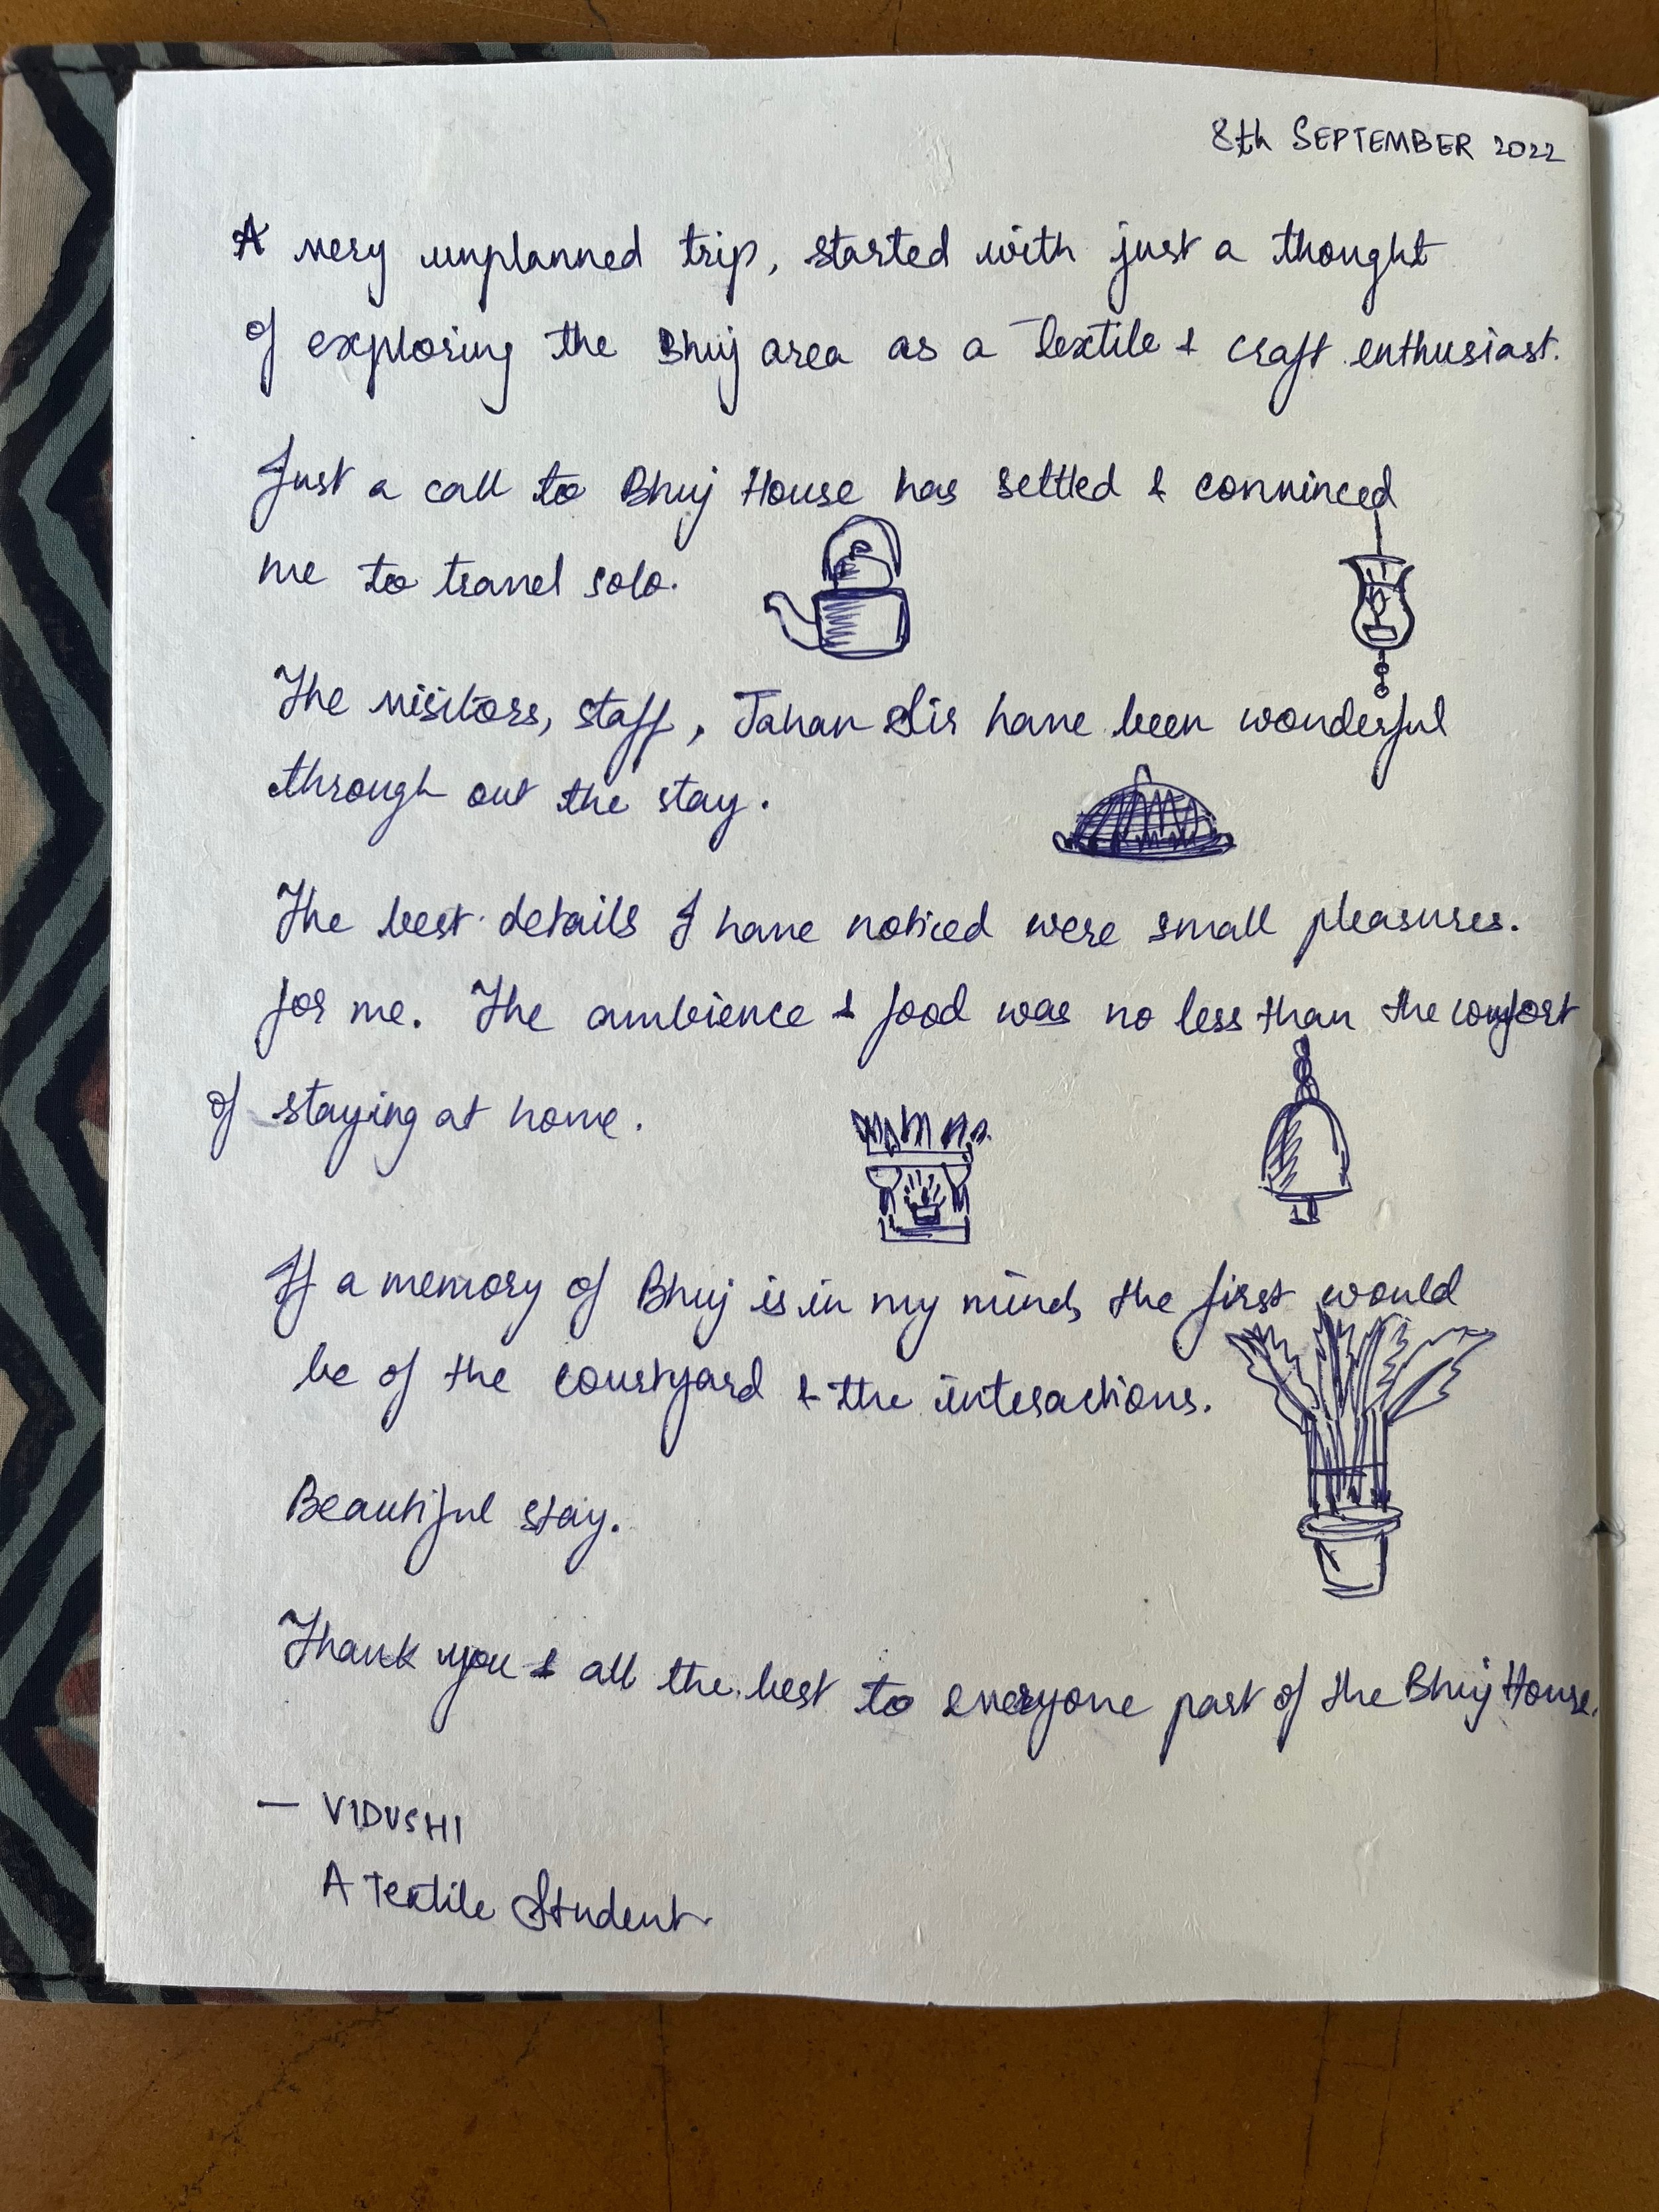 8th SEPTEMBER 2022
A very unplanned trip, started with just a thought
of exploring the Bhuj area as a Textile & craft enthusiast.
Just a call to Bhuj House has settled & convinced
me to travel solo.
The visitors, staff, Jahan Sir have been wonderful
through out the stay.
The best details I have noticed were small pleasures.
for me. The ambience & food was no less than the comfort
of staying at home.
If a memory of Bhuj is in my mind, the first would
be of the courtyard & the interactions.
Beautiful stay.
Thank you & all the best to everyone part of the Bhuj House.
— VIDUSHI
A Textile Student.